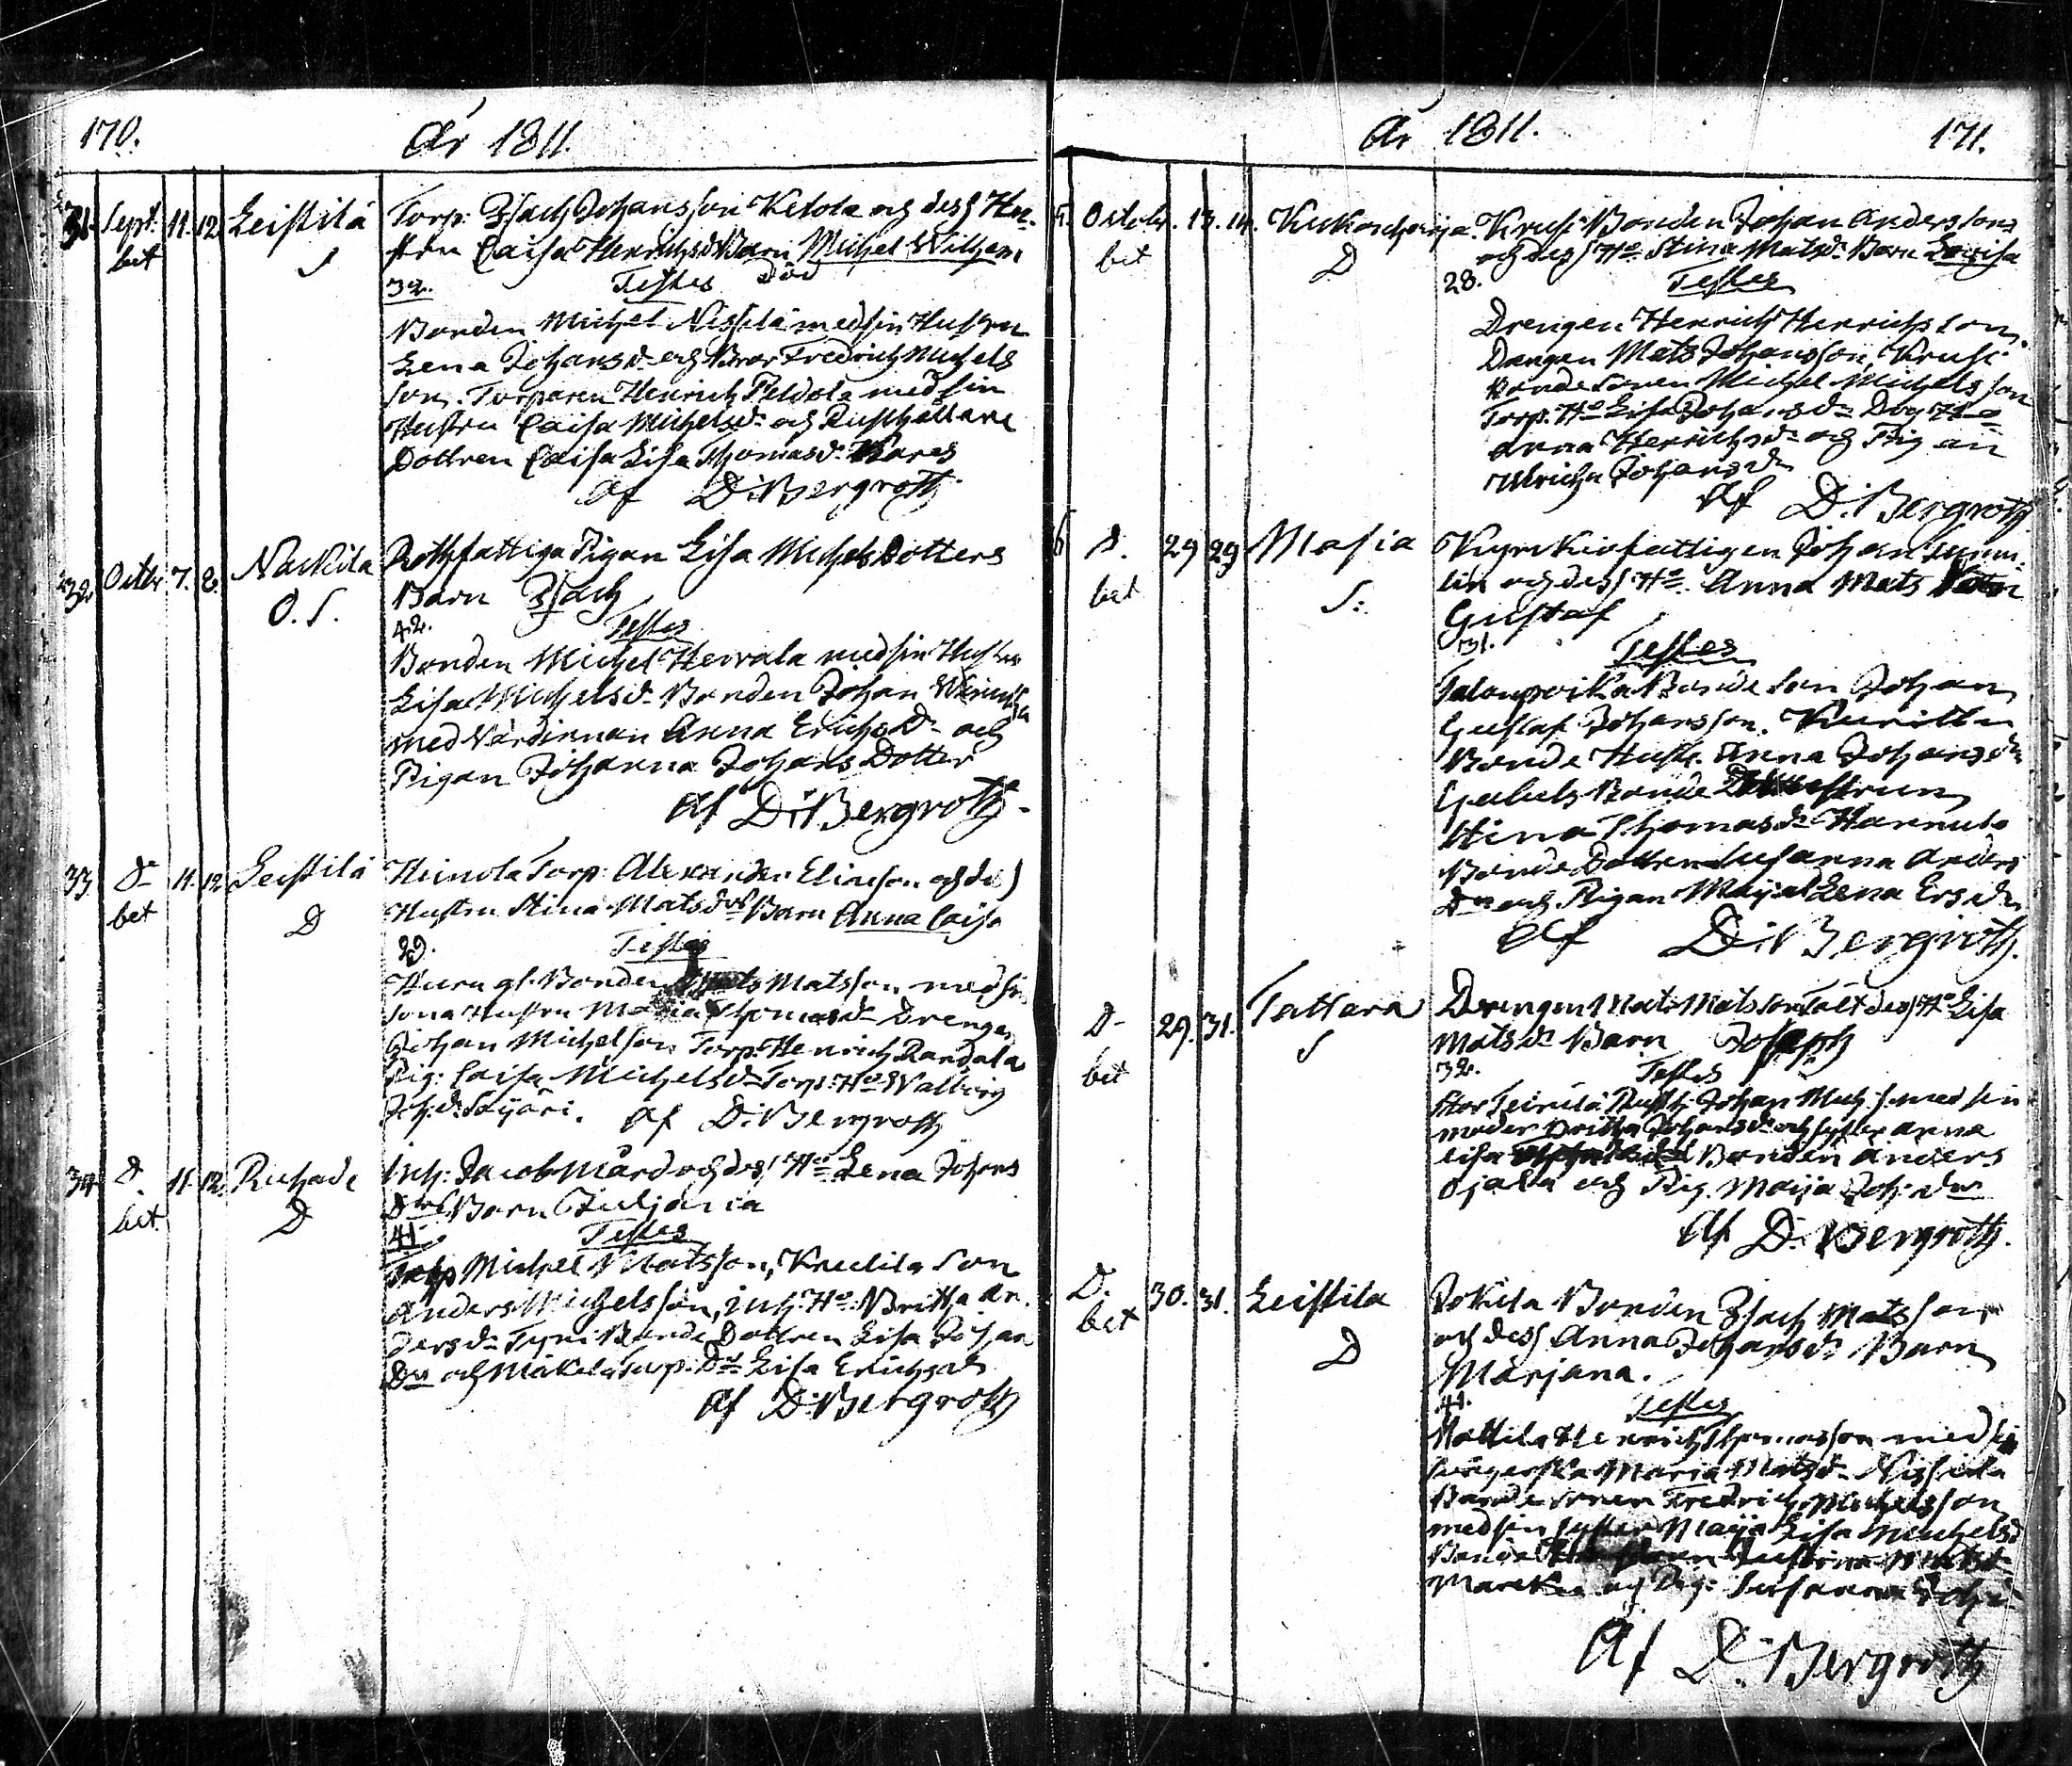 170. År 1811.
31. Sept. 11. 12. Leistilä Torp: Isach Johansson Ketola och dess Hu-
bet S stru Caisa Henrichsd. Barn Michel Wilhem.
32. Testes död
Bonden Michel Nissilä med sin Hustru
Lena Johansd. och Bror Fredrich Michels
son. Torparen Henrich Peldola med sin
Hustru Caisa Michelsd. och Rusthållare
Dottren Caisa Lisa Thomasd. Kares
Af D: Bergroth.
32. Octbr 7. 8. Nackila Rothfattiga Pigan Lisa Michels Dotters
O. S. Barn Isach
42. Testes
Bonden Michel Hervala med sin Hustru
Lisa Michelsd. Bonden Johan
med Värdinnan Anna Erichs Dr och
Pigan Johanna Johans Dotter
Af D: Bergroth.
33. D- 11. 12. Leistilä Heinola Torp: Alexander Eliæson och des
bet D Hustru Stina Mats dr Barn Anna Caisa
29. Testes
Bonden Mats Matsson med sin
Sona Hustru Maria Thomasd. Drengen
Johan Michelson Torp. Henrich Randala
Pig: Caisa Michelsd. Torp: Ho Walborg
Joh: d. Sayäri. Af D: Bergroth
34. D. 11. 12. Inh: Jacob Mård och dess Ho Lena Johans
bet. D Drs Barn Juljana
41. Testes
Torp Michel Matsson, Knuutila Son
Anders Michelsson, inh: Ho: Britha An-
dersd. Tyni Bonde Dottren Lisa Johans
Dr och Mäkelä Torp. Dr Lisa Erichsdr
Af D: Bergroth
År 1811. 171.
Octobr. 13. 14. Kukonharja. Krusi Bonden Johan Anderssons
bet D och dess Ho Stina Matsdr. Barn Lovisa
28. Testes
Drengen Henrich Henrichsson.
Drengen Mats Johansson, Krusi
Bonde Sonen Michel Michelsson
Torp. Ho Lisa Johansdr
Anna Henrichsdr och Pigan
Ulricha Johansdr
Af D. Bergroth
D. 29 29 Masia Kyrkiofattigen Johan
bet S: lin och dess Ho Anna Mats
Gustaf
31. Testes
Talonpoika Bonde Son Johan
Gustaf Johansson. Kurittu
Bonde Hustr. Anna Johansdr
Gabuls Bonde Hustrun
Stina Thomasdr Hannula
Bonde Dottren Susanna Anders
Dr och Pigan Maija Lena Ersdr
Af D: Bergroth.
D- 29. 31. Tattara Drengen Mats Matsson Tält dess Ho Lisa
bet S Matsdr Barn Joseph
32. Testes
Stor Teirilä Rusth. Johan Mich: s. med sin
moder Britha Johansdr och syster Anna
Lisa Bonden Anders
Ojala och Pig. Maija Joh: dr
Af D. Bergroth.
D. 30. 31. Leistila Jokila Bonden Isach Matsson
bet D och dess Anna Johansdr Barn
Marjana.
41. Testes
Mattila Henrich Thomasson med sin
Maria Matsdr Nissila
Bonde Sonen Fredrich Michelsson
med sin syster Maija Lisa Michelsd
Bonde Justina Matsdr
och Pig: Susanna Johsd
Af D. Bergroth